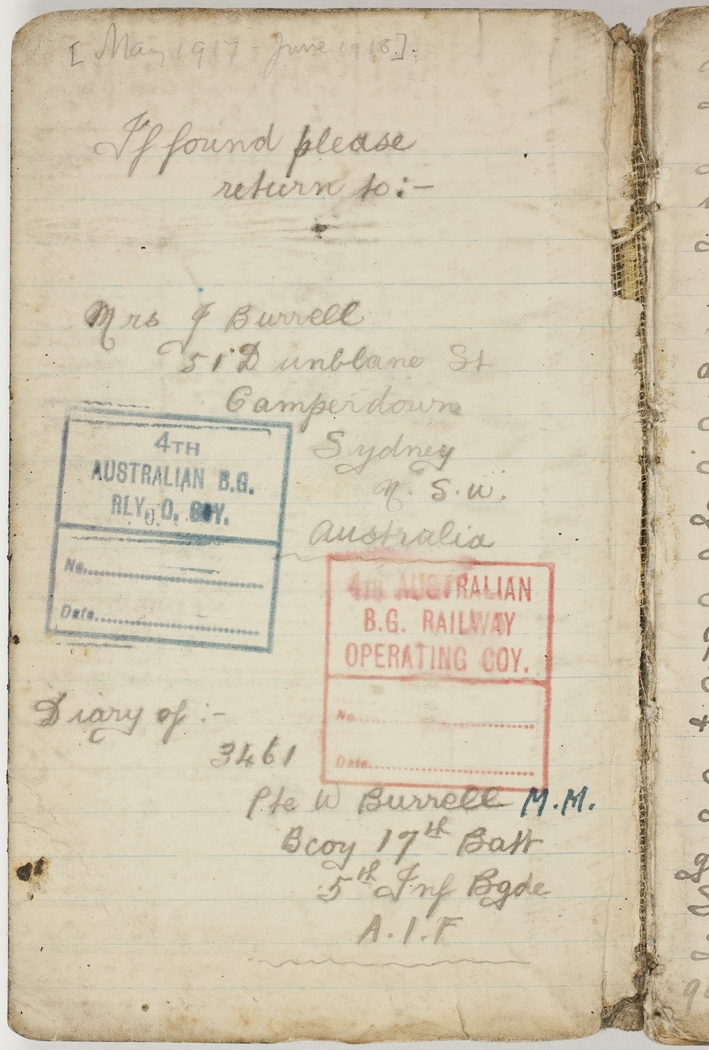 [May 1917 - June 1918].
If found please
return to:-
Mrs J Burrell
51 Dunblane St
Camperdown
Sydney
N. S. W.
Australia
4TH
AUSTRALIAN B.G.
RLY. O. COY.
No.
Date.
4TH AUSTRALIAN
B.G. RAILWAY
OPERATING COY.
No.
Date.
Diary of :-
3461
Pte W Burrell M.M.
Bcoy 17th Batt
5th Inf Bgde
A.I.F